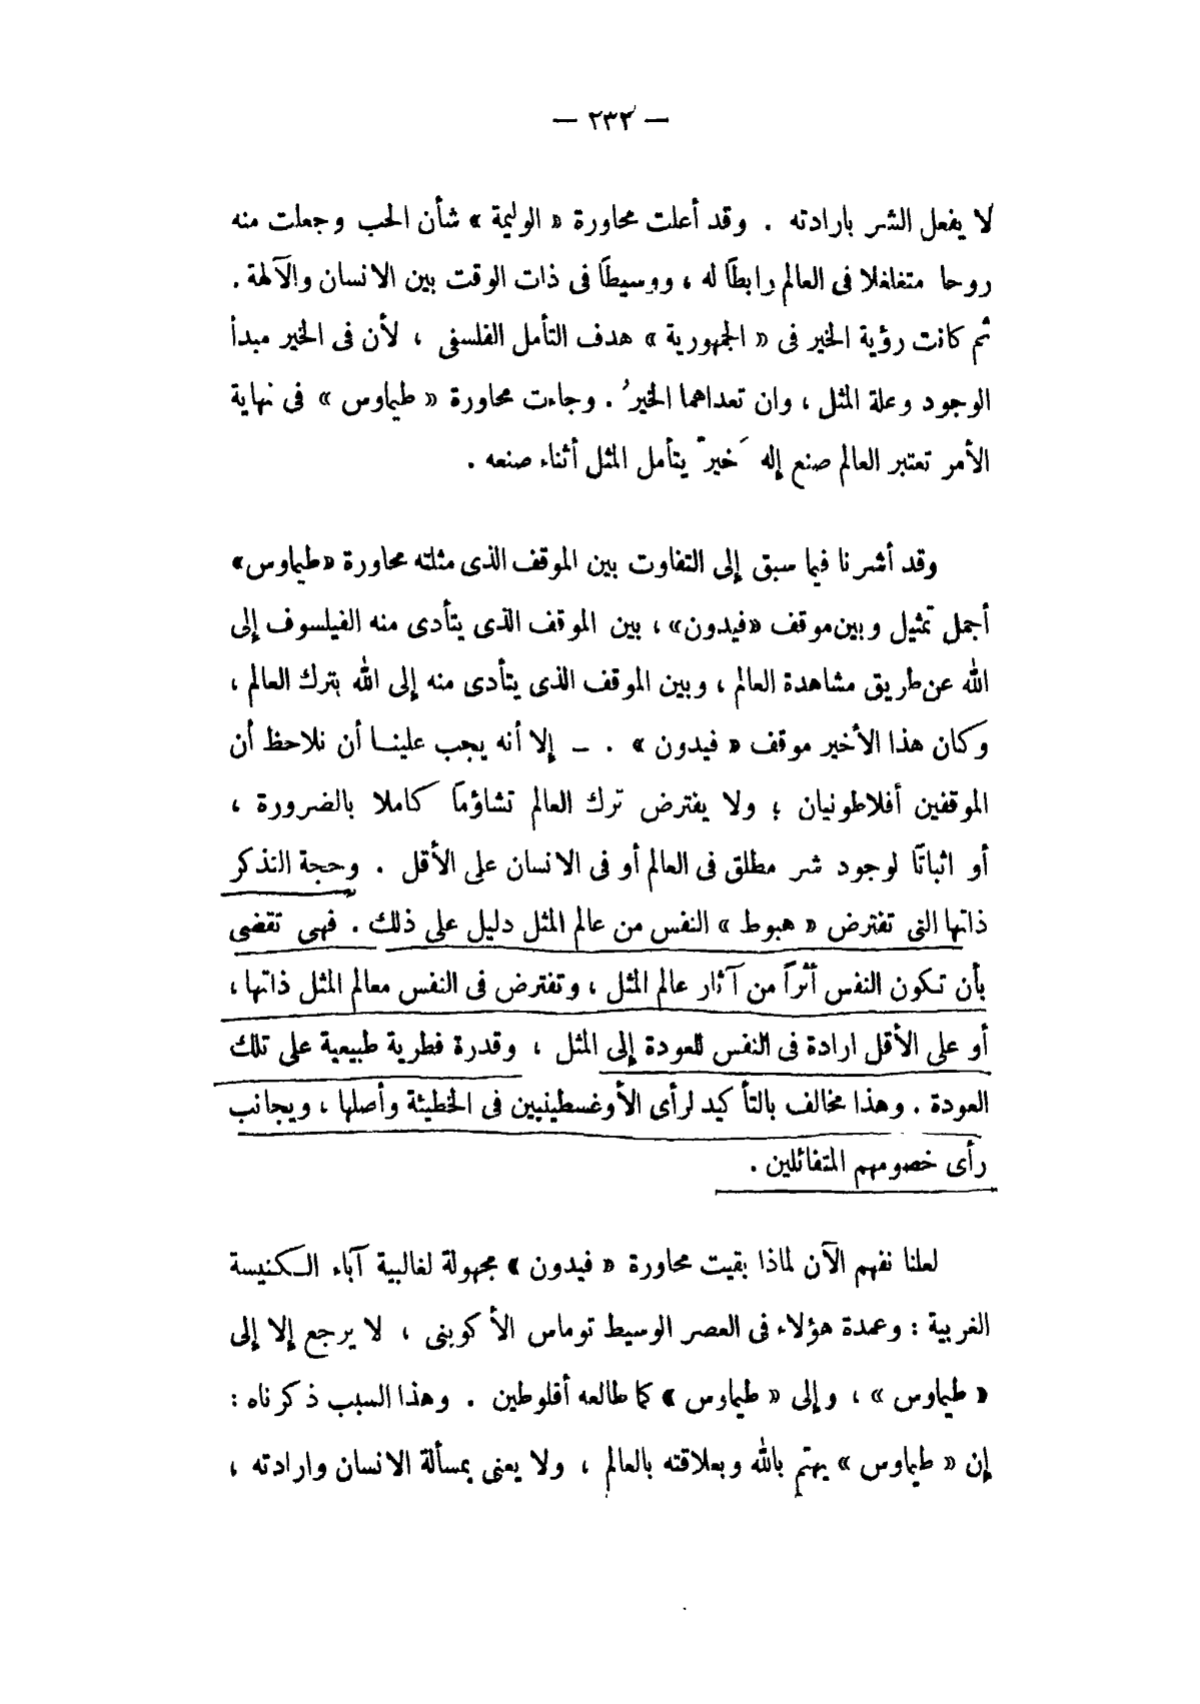 — ٢٣٢ —
لا يفعل الشر بارادته . وقد أعلت محاورة « الوليمة » شأن الحب وجعلت منه
روحا متغلغلا فى العالم رابطاً له ، ووسيطاً فى ذات الوقت بين الانسان والآلهة .
ثم كانت رؤية الخير فى « الجمهورية » هدف التأمل الفلسفى ، لأن فى الخير مبدأ
الوجود وعلة المثل ، وان تعداهما الخيرُ . وجاءت محاورة « طيماوس » فى نهاية
الأمر تعتبر العالم صنع إله خَيرّ يتأمل المثل أثناء صنعه .
وقد أشرنا فيما سبق إلى التفاوت بين الموقف الذى مثلته محاورة «طيماوس»
أجمل تمثيل وبين موقف «فيدون» ، بين الموقف الذى يتأدى منه الفيلسوف إلى
الله عن طريق مشاهدة العالم ، وبين الموقف الذى يتأدى منه إلى الله بترك العالم ،
وكان هذا الأخير موقف « فيدون » . – إلا أنه يجب علينا أن نلاحظ أن
الموقفين أفلاطونيان ؛ ولا يفترض ترك العالم تشاؤماً كاملا بالضرورة ،
أو اثباتاً لوجود شر مطلق فى العالم أو فى الانسان على الأقل . وحجة التذكر
ذاتها التى تفترض « هبوط » النفس من عالم المثل دليل على ذلك . فهى تقضى
بأن تكون النفس أثراً من آثار عالم المثل ، وتفترض فى النفس معالم المثل ذاتها ،
أو على الأقل ارادة فى النفس للعودة إلى المثل ، وقدرة فطرية طبيعية على تلك
العودة . وهذا مخالف بالتأكيد لرأى الأوغسطينيين فى الخطيئة وأصلها ، ويجانب
رأى خصومهم المتفائلين .
لعلنا نفهم الآن لماذا بقيت محاورة « فيدون » مجهولة لغالبية آباء الكنيسة
الغربية : وعمدة هؤلاء فى العصر الوسيط توماس الأكوينى ، لا يرجع إلا إلى
« طيماوس » ، وإلى « طيماوس » كما طالعه أفلوطين . وهذا السبب ذكرناه :
إن « طيماوس » يهتم بالله وبعلاقته بالعالم ، ولا يعنى بمسألة الانسان وارادته ،